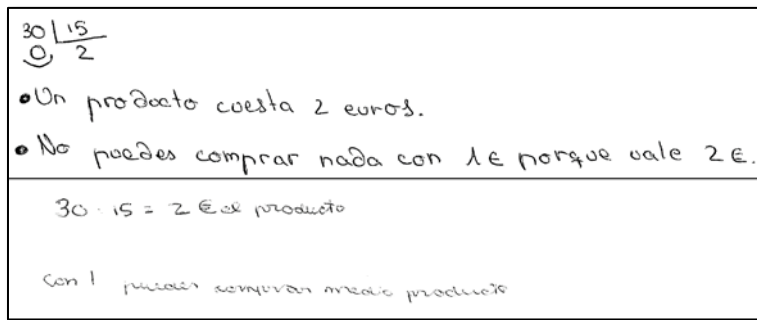 30 | 15
0 2
• Un producto cuesta 2 euros.
• No puedes comprar nada con 1€ porque vale 2€.
30 · 15 = 2€ el producto
Con 1 puedes comprar medio producto